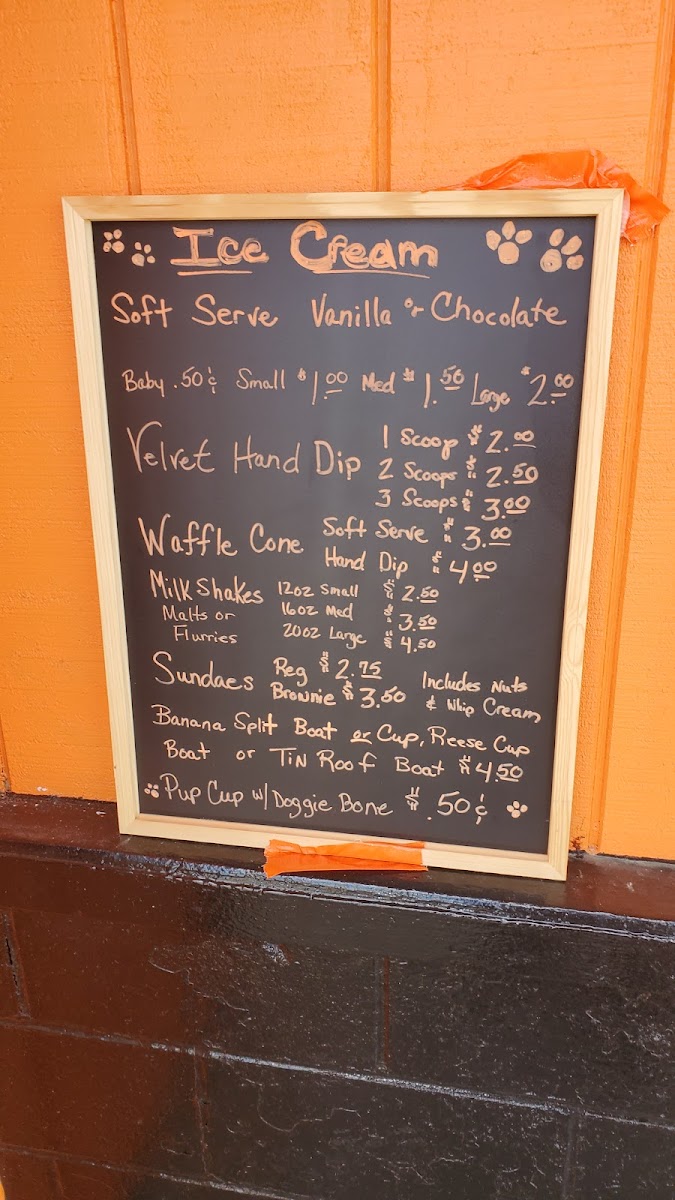 Ice Cream
Soft Serve Vanilla or Chocolate
Baby .50¢ Small $1.00 Med $1.50 Large $2.00
Velvet Hand Dip
1 Scoop $2.00
2 Scoops $2.50
3 Scoops $3.00
Waffle Cone
Soft Serve $3.00
Hand Dip $4.00
Milkshakes
Malts or
Flurries
12oz Small $2.50
16oz Med $3.50
20oz Large $4.50
Sundaes
Reg $2.75
Brownie $3.50
Includes Nuts
& Whip Cream
Banana Split Boat or Cup, Reese Cup
Boat or Tin Roof Boat $4.50
Pup Cup w/ Doggie Bone $.50¢